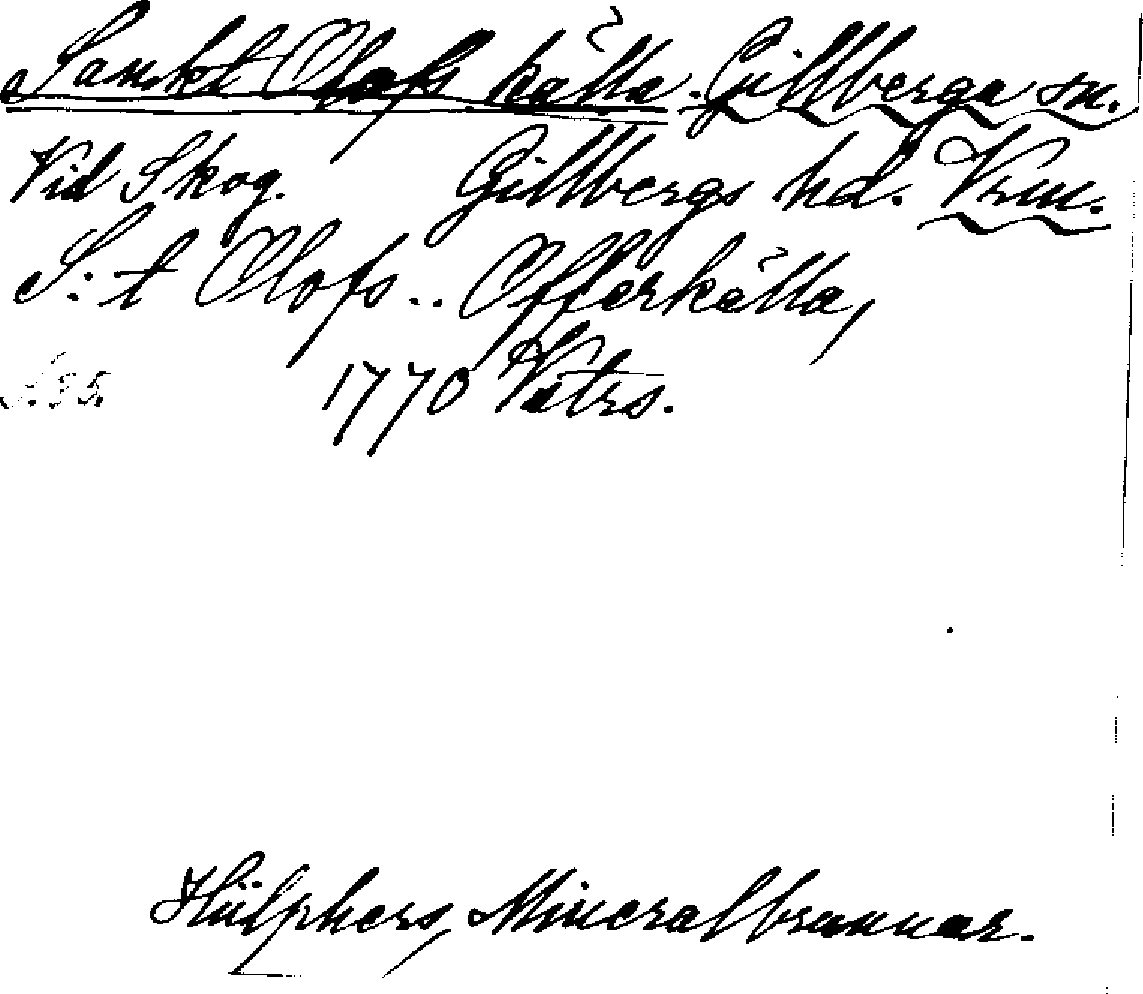 Sankt Olofs källa. Gillberga sn.
Vid Skog. Gillbergs hd. Vrm.
S:t Olofs .. Offerkälla,
1770 Vitrs.
Hülphers, Mineralbrunnar.